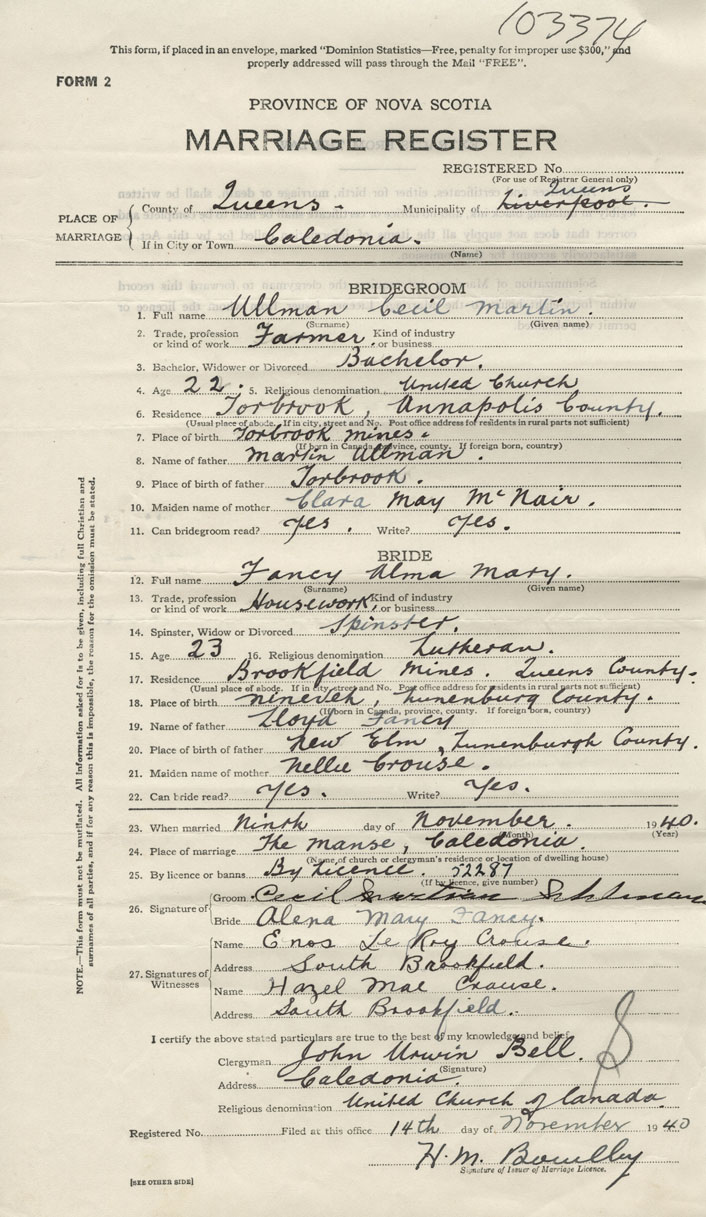 103374
This form, if placed in an envelope, marked "Dominion Statistics—Free, penalty for improper use $300," and
properly addressed will pass through the Mail "FREE".
FORM 2
PROVINCE OF NOVA SCOTIA
MARRIAGE REGISTER
REGISTERED No.
(For use of Registrar General only)
Queens
PLACE OF MARRIAGE
County of Queens - Municipality of Liverpool. -
If in City or Town Caledonia.
(Name)
BRIDEGROOM
1. Full name Ullman Cecil Martin.
(Surname) (Given name)
2. Trade, profession or kind of work Farmer. Kind of industry or business
3. Bachelor, Widower or Divorced Bachelor.
4. Age 22. 5. Religious denomination United Church
6. Residence Torbrook, Annapolis County.
(Usual place of abode. If in city, street and No. Post office address for residents in rural parts not sufficient)
7. Place of birth Torbrook mines.
(If born in Canada, province, county. If foreign born, country)
8. Name of father Martin Ullman.
9. Place of birth of father Torbrook.
10. Maiden name of mother Clara May McNair.
11. Can bridegroom read? Yes. Write? Yes.
BRIDE
12. Full name Fancy Alma Mary.
(Surname) (Given name)
13. Trade, profession or kind of work Housework, Kind of industry or business
14. Spinster, Widow or Divorced Spinster.
15. Age 23 16. Religious denomination Lutheran.
17. Residence Brookfield Mines. Queens County.
(Usual place of abode. If in city, street and No. Post office address for residents in rural parts not sufficient)
18. Place of birth Ninevek, Lunenburg County.
(If born in Canada, province, county. If foreign born, country)
19. Name of father Lloyd Fancy
20. Place of birth of father New Elm, Lunenburgh County.
21. Maiden name of mother Nellie Crouse.
22. Can bride read? Yes. Write? Yes.
23. When married Ninth day of November. 1940.
(Month) (Year)
24. Place of marriage The Manse, Caledonia.
(Name of church or clergyman's residence or location of dwelling house)
25. By licence or banns By Licence. 52287
(If by licence, give number)
26. Signature of Groom Cecil
Bride Alena Mary Fancy.
27. Signatures of Witnesses
Name Enos Le Roy Crouse.
Address South Brookfield.
Name Hazel Mae Crouse.
Address South Brookfield.
I certify the above stated particulars are true to the best of my knowledge and belief.
Clergyman John Urwin Bell.
(Signature)
Address Caledonia.
Religious denomination United Church of Canada.
Registered No. Filed at this office 14th day of November 1940
H. M.
Signature of Issuer of Marriage Licence.
[SEE OTHER SIDE]
NOTE.—This form must not be mutilated. All information asked for is to be given, including full Christian and
surnames of all parties, and if for any reason this is impossible, the reason for the omission must be stated.